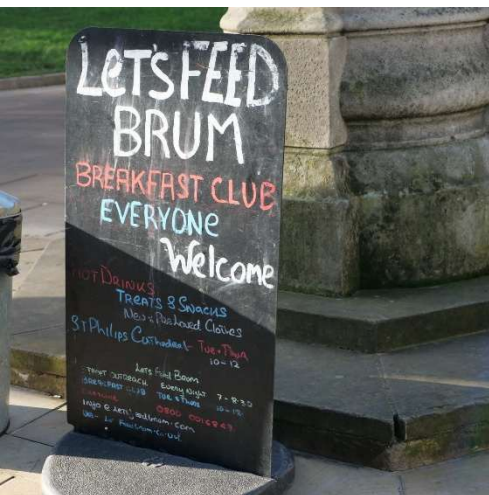 LET'S FEED
BRUM
BREAKFAST CLUB
EVERYONE
Welcome
HOT DRINKS
TREATS & SNACKS
New & PreLoved Clothes
ST Philips Cathedral Tue + Thur
10 - 12
Lets Feed Brum
STREET OUTREACH Every Night 7 - 8:30
BREAKFAST CLUB TUE & Thur 10 - 12
0800